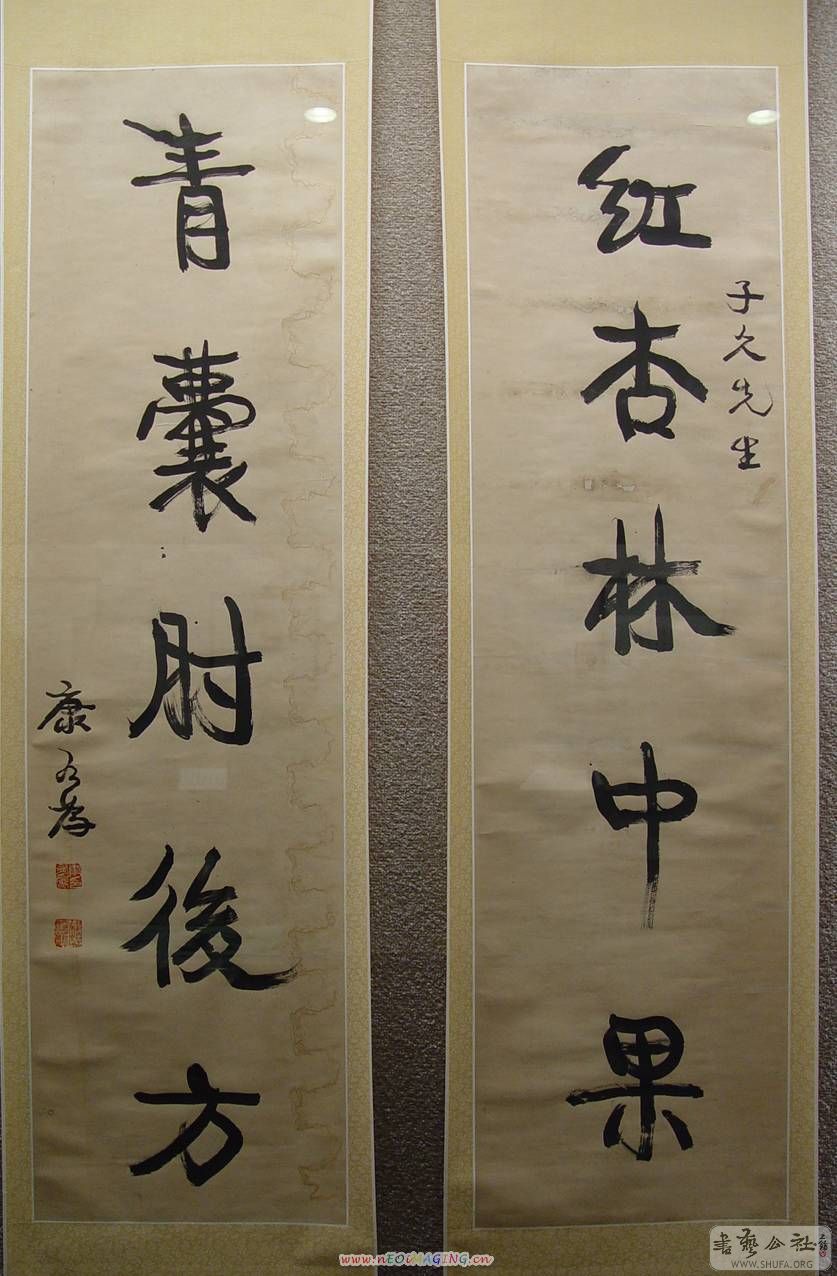 子久先生
红杏林中果
青囊肘後方
康有為
書藝公社
WWW.SHUFA.ORG
www.nEOiMAGING.cn